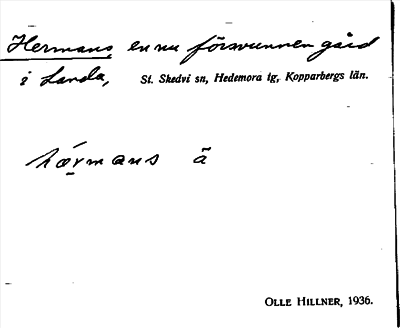 Hermans en nu försvunnen gård
i Landa, St. Skedvi sn, Hedemora tg, Kopparbergs län.
hærmans ä
OLLE HILLNER, 1936.